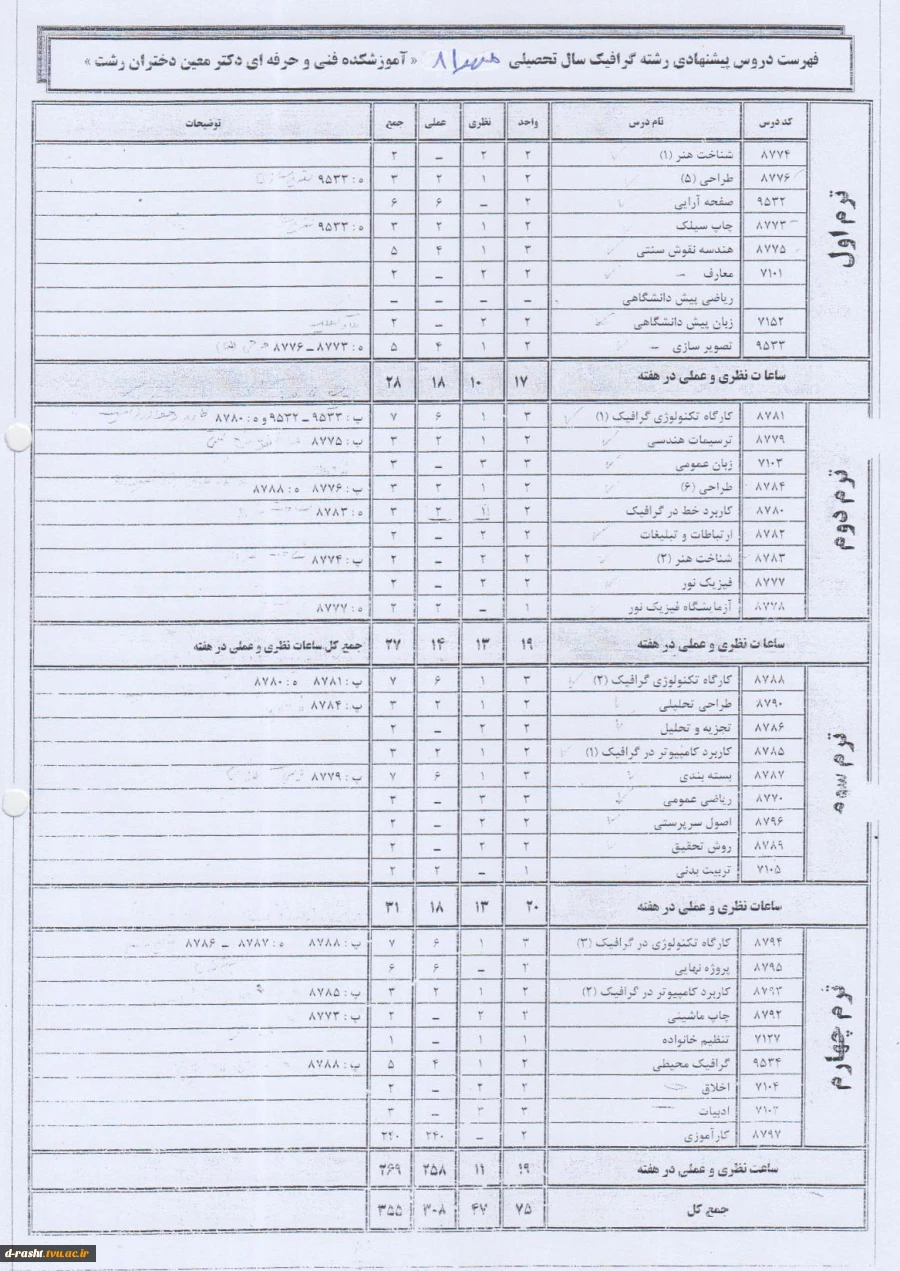 فهرست دروس پیشنهادی رشته گرافیک سال تحصیلی ۸۱ « آموزشکده فنی و حرفه ای دکتر معین دختران رشت »
کد درس نام درس واحد نظری عملی جمع توضیحات
ترم اول
۸۷۷۴ شناخت هنر (۱) ۲ ۲ _ ۲
۸۷۷۶ طراحی (۵) ۲ ۱ ۲ ۳ ه : ۹۵۳۳
۹۵۳۲ صفحه آرایی ۲ _ ۶ ۶
۸۷۷۳ چاپ سیلک ۲ ۱ ۲ ۳ ه : ۹۵۳۳
۸۷۷۵ هندسه نقوش سنتی ۳ ۱ ۴ ۵
۷۱۰۱ معارف ۲ ۲ _ ۲
ریاضی پیش دانشگاهی _ _ _ _
۷۱۵۲ زبان پیش دانشگاهی ۲ ۲ _ ۲
۹۵۳۳ تصویر سازی ۲ ۱ ۴ ۵ ه : ۸۷۷۳ _ ۸۷۷۶
ساعات نظری و عملی در هفته ۱۷ ۱۰ ۱۸ ۲۸
ترم دوم
۸۷۸۱ کارگاه تکنولوژی گرافیک (۱) ۳ ۱ ۶ ۷ پ : ۹۵۳۳ _ ۹۵۳۲ و ه : ۸۷۸۰
۸۷۷۹ ترسیمات هندسی ۲ ۱ ۲ ۳ پ : ۸۷۷۵
۷۱۰۳ زبان عمومی ۳ ۳ _ ۳
۸۷۸۴ طراحی (۶) ۲ ۱ ۲ ۳ پ : ۸۷۷۶ ه : ۸۷۸۸
۸۷۸۰ کاربرد خط در گرافیک ۲ ۱ ۲ ۳ ه : ۸۷۸۳
۸۷۸۲ ارتباطات و تبلیغات ۲ ۲ _ ۲
۸۷۸۳ شناخت هنر (۲) ۲ ۲ _ ۲ پ : ۸۷۷۴
۸۷۷۷ فیزیک نور ۲ ۲ _ ۲
۸۷۷۸ آزمایشگاه فیزیک نور ۱ _ ۲ ۲ ه : ۸۷۷۷
ساعات نظری و عملی در هفته ۱۹ ۱۳ ۱۴ ۲۷ جمع کل ساعات نظری و عملی در هفته
ترم سوم
۸۷۸۸ کارگاه تکنولوژی گرافیک (۲) ۳ ۱ ۶ ۷ پ : ۸۷۸۱ ه : ۸۷۸۰
۸۷۹۰ طراحی تحلیلی ۲ ۱ ۲ ۳ پ : ۸۷۸۴
۸۷۸۶ تجزیه و تحلیل ۲ ۲ _ ۲
۸۷۸۵ کاربرد کامپیوتر در گرافیک (۱) ۲ ۱ ۲ ۳
۸۷۸۷ بسته بندی ۳ ۱ ۶ ۷ پ : ۸۷۷۹
۸۷۷۰ ریاضی عمومی ۳ ۳ _ ۳
۸۷۹۶ اصول سرپرستی ۲ ۲ _ ۲
۸۷۸۹ روش تحقیق ۲ ۲ _ ۲
۷۱۰۵ تربیت بدنی ۱ _ ۲ ۲
ساعات نظری و عملی در هفته ۲۰ ۱۳ ۱۸ ۳۱
ترم چهارم
۸۷۹۴ کارگاه تکنولوژی در گرافیک (۳) ۳ ۱ ۶ ۷ پ : ۸۷۸۸ ه : ۸۷۸۷ _ ۸۷۸۶
۸۷۹۵ پروژه نهایی ۲ _ ۶ ۶
۸۷۹۳ کاربرد کامپیوتر در گرافیک (۲) ۲ ۱ ۲ ۳ پ : ۸۷۸۵
۸۷۹۲ چاپ ماشینی ۲ ۲ _ ۲ پ : ۸۷۷۳
۷۱۲۷ تنظیم خانواده ۱ ۱ _ ۱
۹۵۳۴ گرافیک محیطی ۲ ۱ ۴ ۵ پ : ۸۷۸۸
۷۱۰۴ اخلاق ۲ ۲ _ ۲
۷۱۰۲ ادبیات ۳ ۳ _ ۳
۸۷۹۷ کارآموزی ۲ _ ۲۴۰ ۲۴۰
ساعت نظری و عملی در هفته ۱۹ ۱۱ ۲۵۸ ۲۶۹
جمع کل ۷۵ ۴۷ ۳۰۸ ۳۵۵
d-rasht.tvu.ac.ir